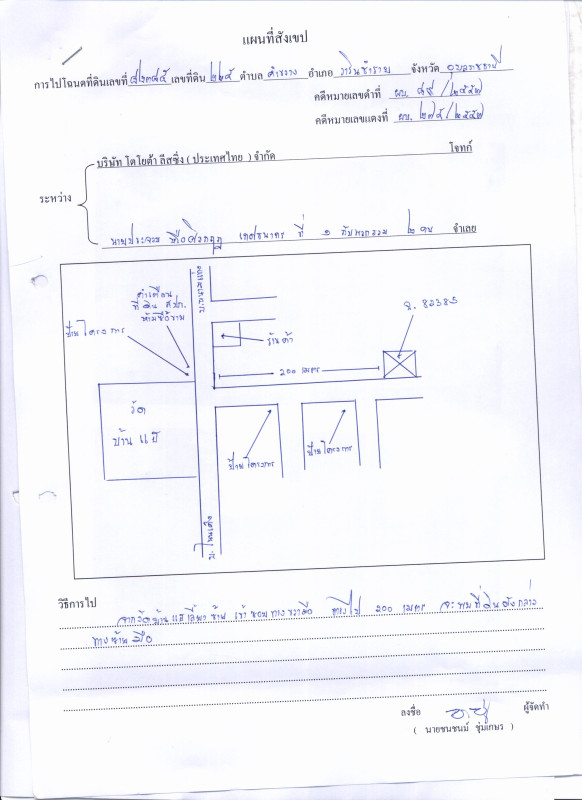 แผนที่สังเขป
การไปโฉนดที่ดินเลขที่ ๘๒๓๘๕ เลขที่ดิน ๒๒๕ ตำบล คำขวาง อำเภอ วารินชำราบ จังหวัด อุบลราชธานี
คดีหมายเลขดำที่ ผบ. ๘๙/๒๕๕๒
คดีหมายเลขแดงที่ ผบ. ๒๗๕/๒๕๕๒
บริษัท โตโยต้า ลีสซิ่ง ( ประเทศไทย ) จำกัด โจทก์
ระหว่าง
ที่ ๑ กับพวกรวม ๒ คน จำเลย
คำเตือน
ที่ดิน ส.ปก.
ห้ามซื้อขาย
ป้ายโครงการ
ร้านค้า
ฉ. 82385
200 เมตร
วัด
บ้าน แฮ
ป้ายโครงการ
ป้ายโครงการ
วิธีการไป
จากวัดบ้านแฮ เข้าซอยทางขวามือ 200 เมตร จะพบที่ดินดังกล่าว
ทางซ้ายมือ
ลงชื่อ ผู้จัดทำ
( นายชนชนม์ ชุ่มเกษร )